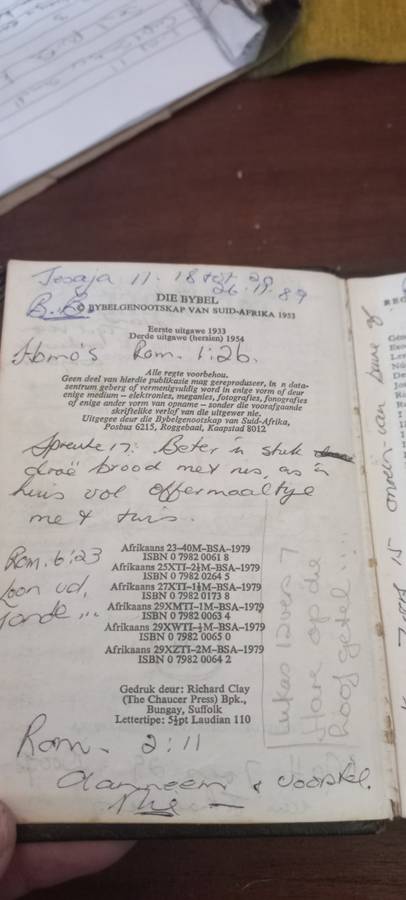 Jesaja 11. 18 tot 20
26.11.89
DIE BYBEL
© BYBELGENOOTSKAP VAN SUID-AFRIKA 1953
Eerste uitgawe 1933
Derde uitgawe (hersien) 1954
Homo's Rom. 1:26.
Alle regte voorbehou.
Geen deel van hierdie publikasie mag gereproduseer, in 'n data-
sentrum geberg of vermenigvuldig word in enige vorm of deur
enige medium – elektronies, meganies, fotografies, fonografies
of enige ander vorm van opname – sonder die voorafgaande
skriftelike verlof van die uitgewer nie.
Uitgegee deur die Bybelgenootskap van Suid-Afrika,
Posbus 6215, Roggebaai, Kaapstad 8012
Spreuke 17: Beter 'n stuk
droë brood met rus, as 'n
huis vol offermaaltye
met twis.
Rom. 6:23
Loon vd.
sonde ...
Afrikaans 23–40M–BSA–1979
ISBN 0 7982 0061 8
Afrikaans 25XTI–2½M–BSA–1979
ISBN 0 7982 0264 5
Afrikaans 27XTI–1½M–BSA–1979
ISBN 0 7982 0173 8
Afrikaans 29XMTI–1M–BSA–1979
ISBN 0 7982 0063 4
Afrikaans 29XWTI–½M–BSA–1979
ISBN 0 7982 0065 0
Afrikaans 29XZTI–2M–BSA–1979
ISBN 0 7982 0064 2
Lukas 12 vers 7
Hare op die
hoof getel ...
Gedruk deur: Richard Clay
(The Chaucer Press) Bpk.,
Bungay, Suffolk
Lettertipe: 5½pt Laudian 110
Rom. 2:11
aanneem